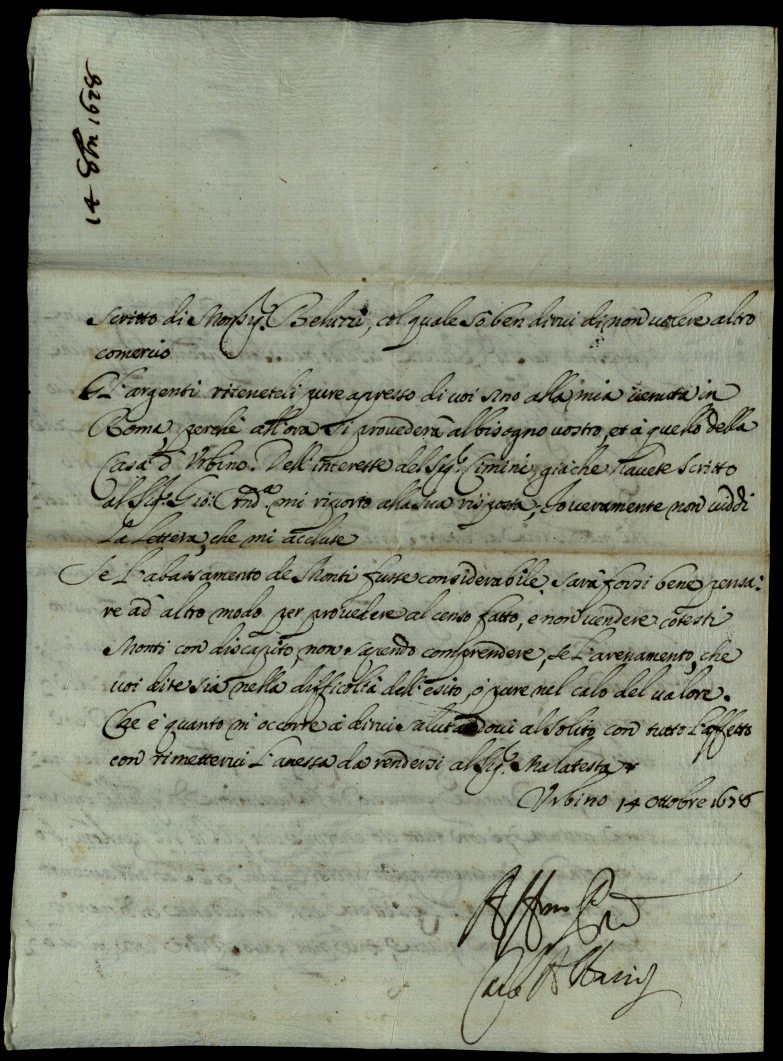 14 8bre 1678
scritto di Monsig.r Beluzzi, col quale sò ben dirvi di non volere altro
comercio
Gl'argenti riteneteli pure apresso di voi sino alla mia venuta in
Roma, perche all'ora si provederà al bisogno vostro, et à quello della
Casa d'Urbino. Dell'interesse del Sig.r Cimini, già che havete scritto
al Sig.r Gio: mi riporto alla sua risposta, Io veramente non viddi
la lettera, che mi accluse
Se l'abassamento de Monti fusse considerabile, sarà forsi bene pensa:
re ad altro modo per provedere al censo fatto, e non vendere cotesti
Monti con discapito, non sapendo comprendere, se l'arenamento, che
voi dite sia nella difficoltà dell'esito, ò pure nel calo del valore.
Che è quanto m'occorre à dirvi salutandovi al solito con tutto l'affetto
con rimettervi l'anessa da rendersi al Sig.r Malatesta
Urbino 14 Ottobre 1678
Aff.mo
Carlo Albani